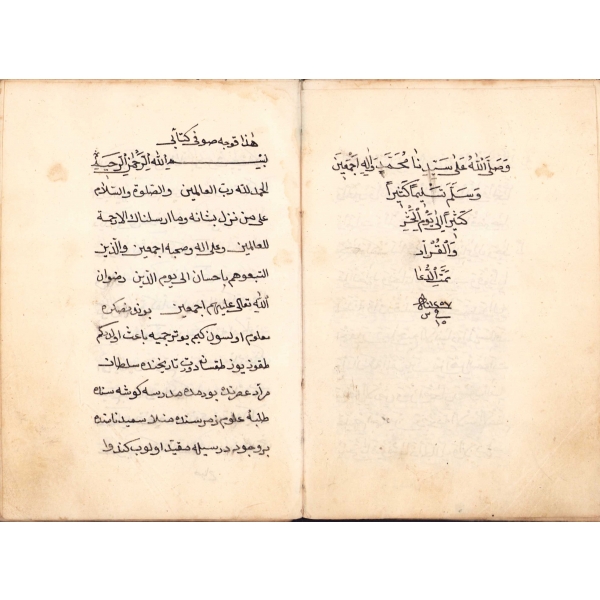 وصلى الله على سيدنا محمد واله اجمعين
وسلم تسليما كثيرا
كثيرا الى يوم الحشر
والقرار
تمت الدعا
١٢٥٧
١٥
هذا قوجه صوفى كتابى
بسم الله الرحمن الرحيم
الحمد لله رب العالمين والصلوة والسلام
على من نزل بشانه وما ارسلناك الا رحمة
للعالمين وعلى اله وصحبه اجمعين والذين
اتبعوهم باحسان الى يوم الدين رضوان
الله تعالى عليهم اجمعين بوندنصكره
معلوم اولسون كيم بو ترجميه باعث اولدركم
طقوز يوز طقسان دورت تاريخنده سلطان
مراد عصرنده بودمده مدرسه كوشه سنده
طلبۀ علوم زمره سنده منلا سعيد نامنده
بر وجود درسيله مقيد اولوب كندو